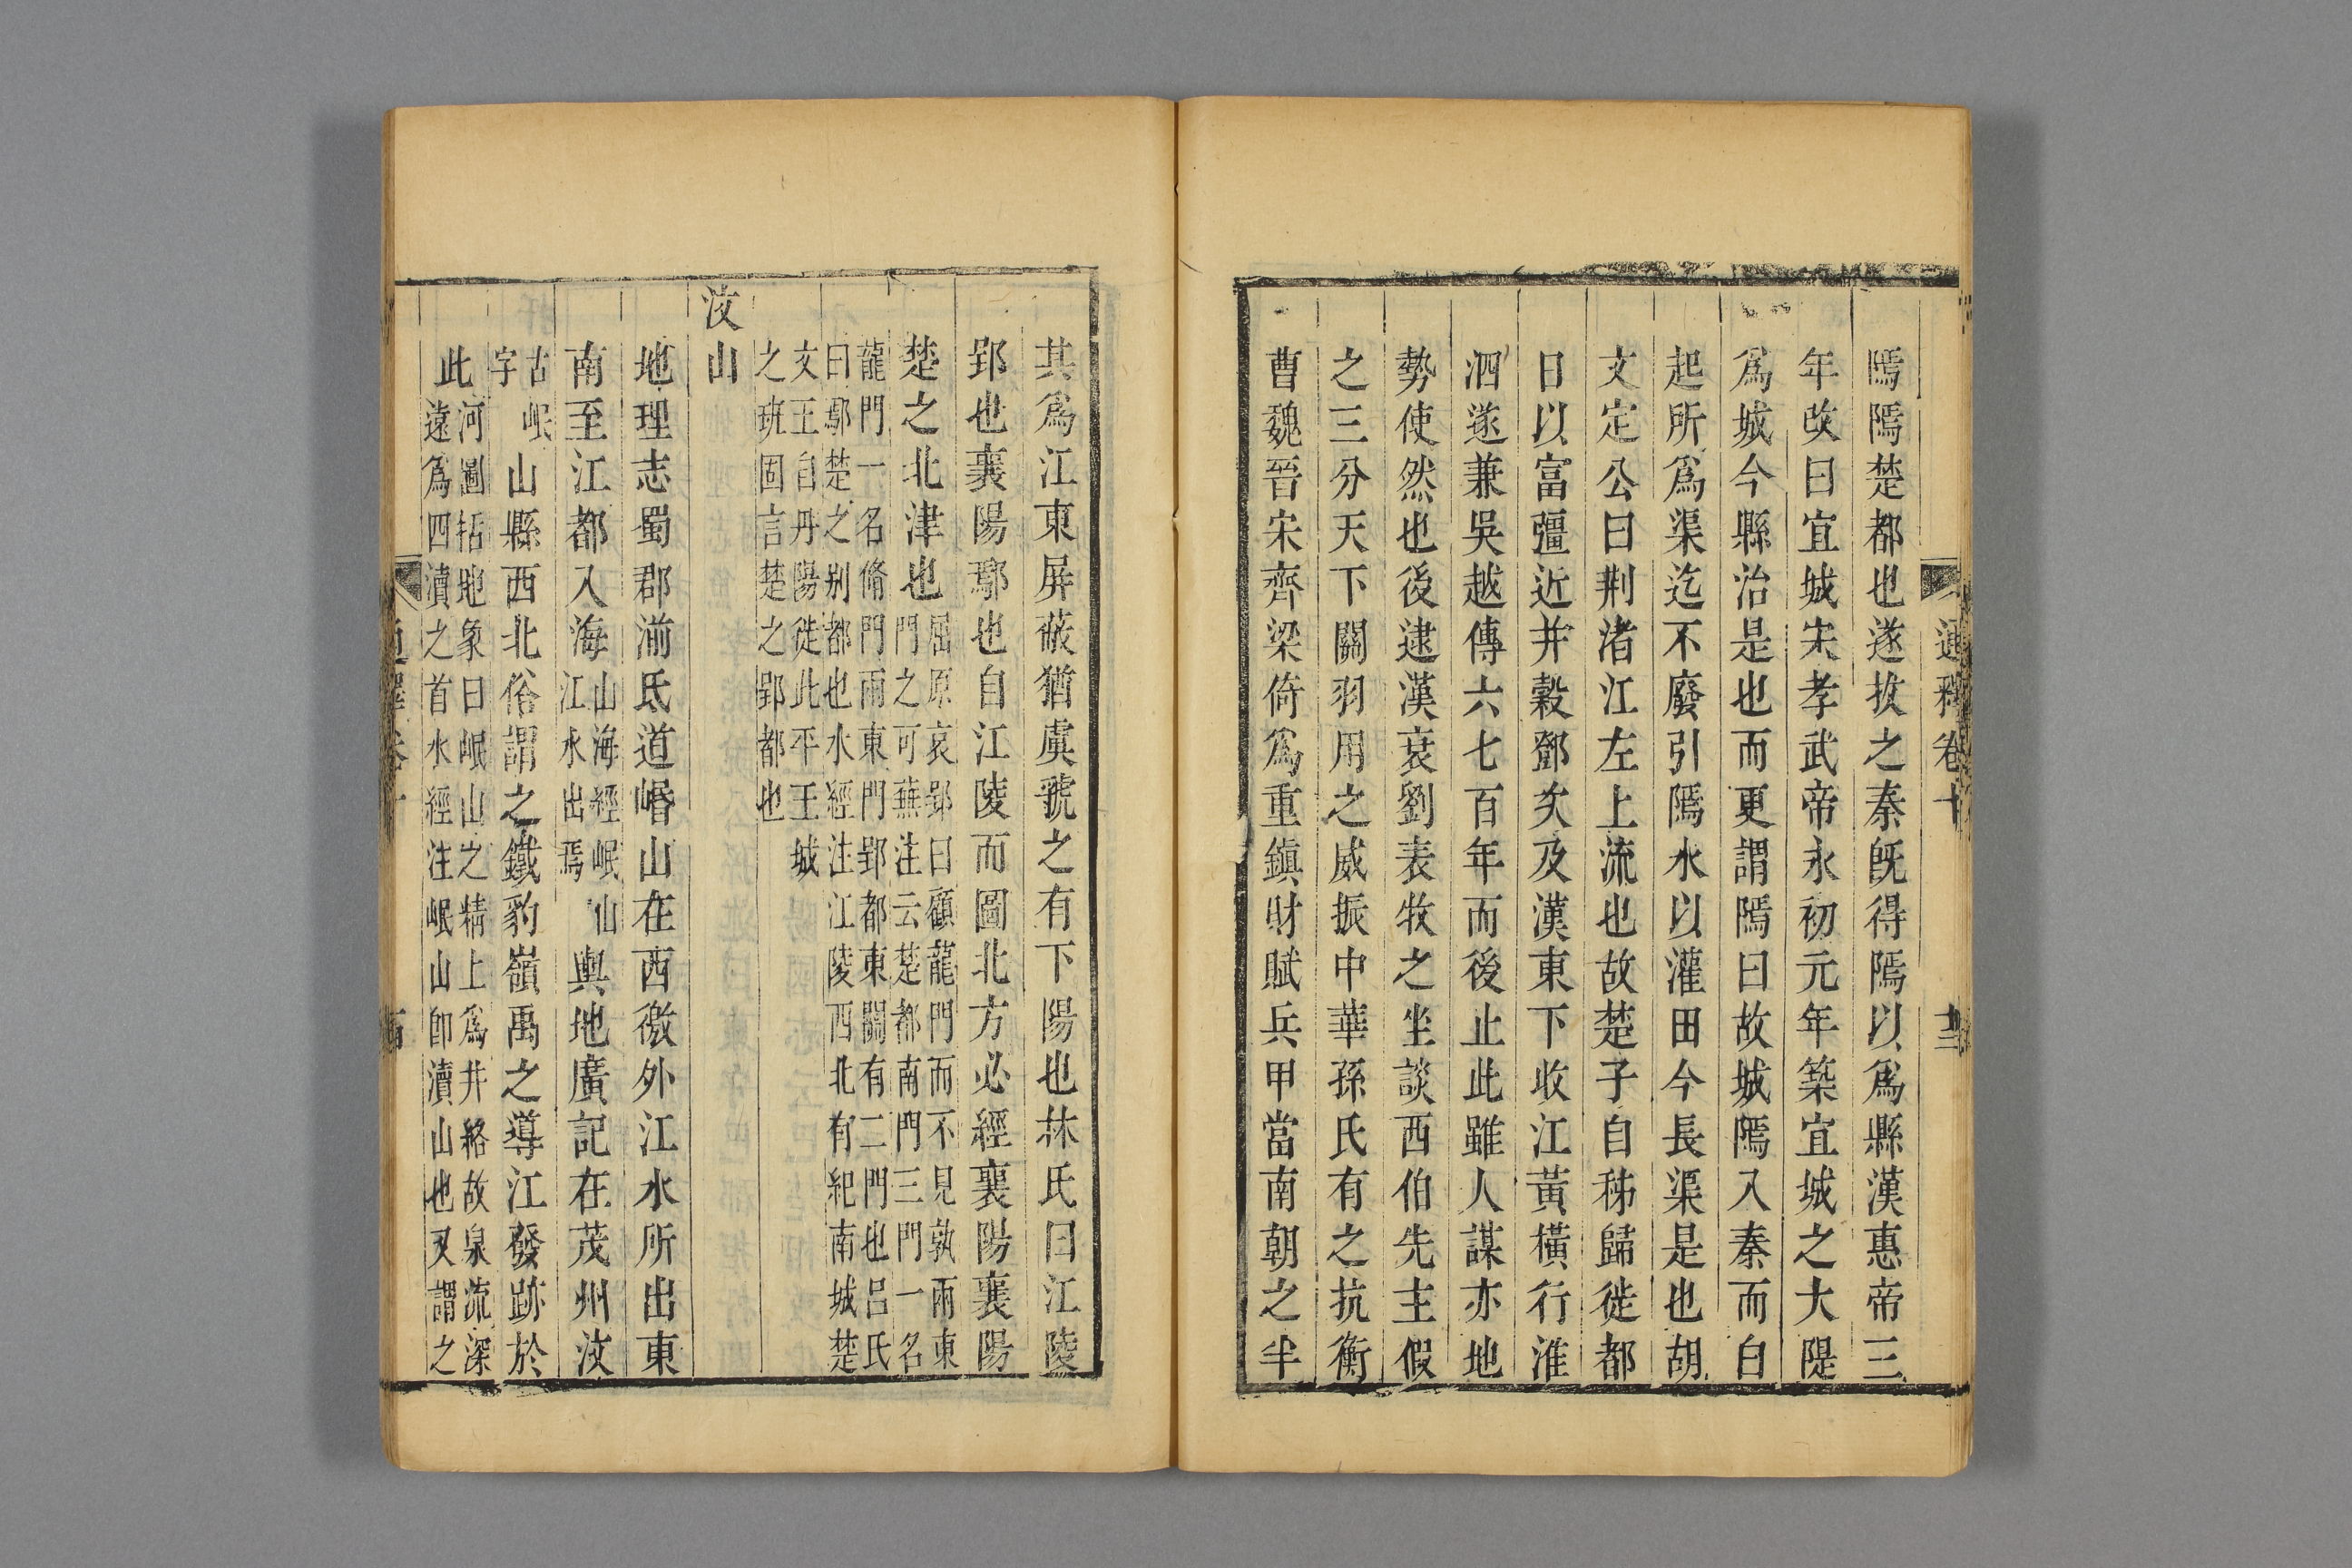 通釋卷十 十三
隖隖楚都也遂拔之秦旣得隖以爲縣漢惠帝三
年攺曰宜城宋孝武帝永初元年築宜城之大隄
爲城今縣治是也而更謂隖曰故城隖入秦而白
起所爲渠迄不廢引隖水以灌田今長渠是也胡
文定公曰荆渚江左上流也故楚子自秭歸徙都
日以富彊近并榖鄧次及漢東下收江黃橫行淮
泗遂兼吳越傳六七百年而後止此雖人謀亦地
勢使然也後逮漢衰劉表牧之坐談西伯先主假
之三分天下關羽用之威振中華孫氏有之抗衡
曹魏晉宋齊梁倚爲重鎮財賦兵甲當南朝之半
其爲江東屏蔽猶虞虢之有下陽也林氏曰江陵
郢也襄陽鄢也自江陵而圖北方必經襄陽襄陽
楚之北津也屈原哀郢曰顧龍門而不見孰兩東
門之可蕪注云楚都南門三門一名
龍門一名脩門兩東門郢都東關有二門也呂氏
曰鄢楚之别都也水經注江陵西北有紀南城楚
文王自丹陽徙此平王城
之班固言楚之郢都也
汶山
地理志蜀郡湔氐道崏山在西徼外江水所出東
南至江都入海山海經岷山
江水出焉輿地廣記在茂州汶
古岷
字山縣西北俗謂之鐵豹嶺禹之導江發跡於
此河圖括地象曰岷山之精上爲井絡故泉流深
遠爲四瀆之首水經注岷山卽瀆山也又謂之